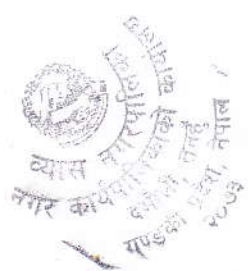 व्यास नगरपालिका
नगर कार्यपालिकाको कार्यालय
दमौली, तनहुँ
गण्डकी प्रदेश, नेपाल